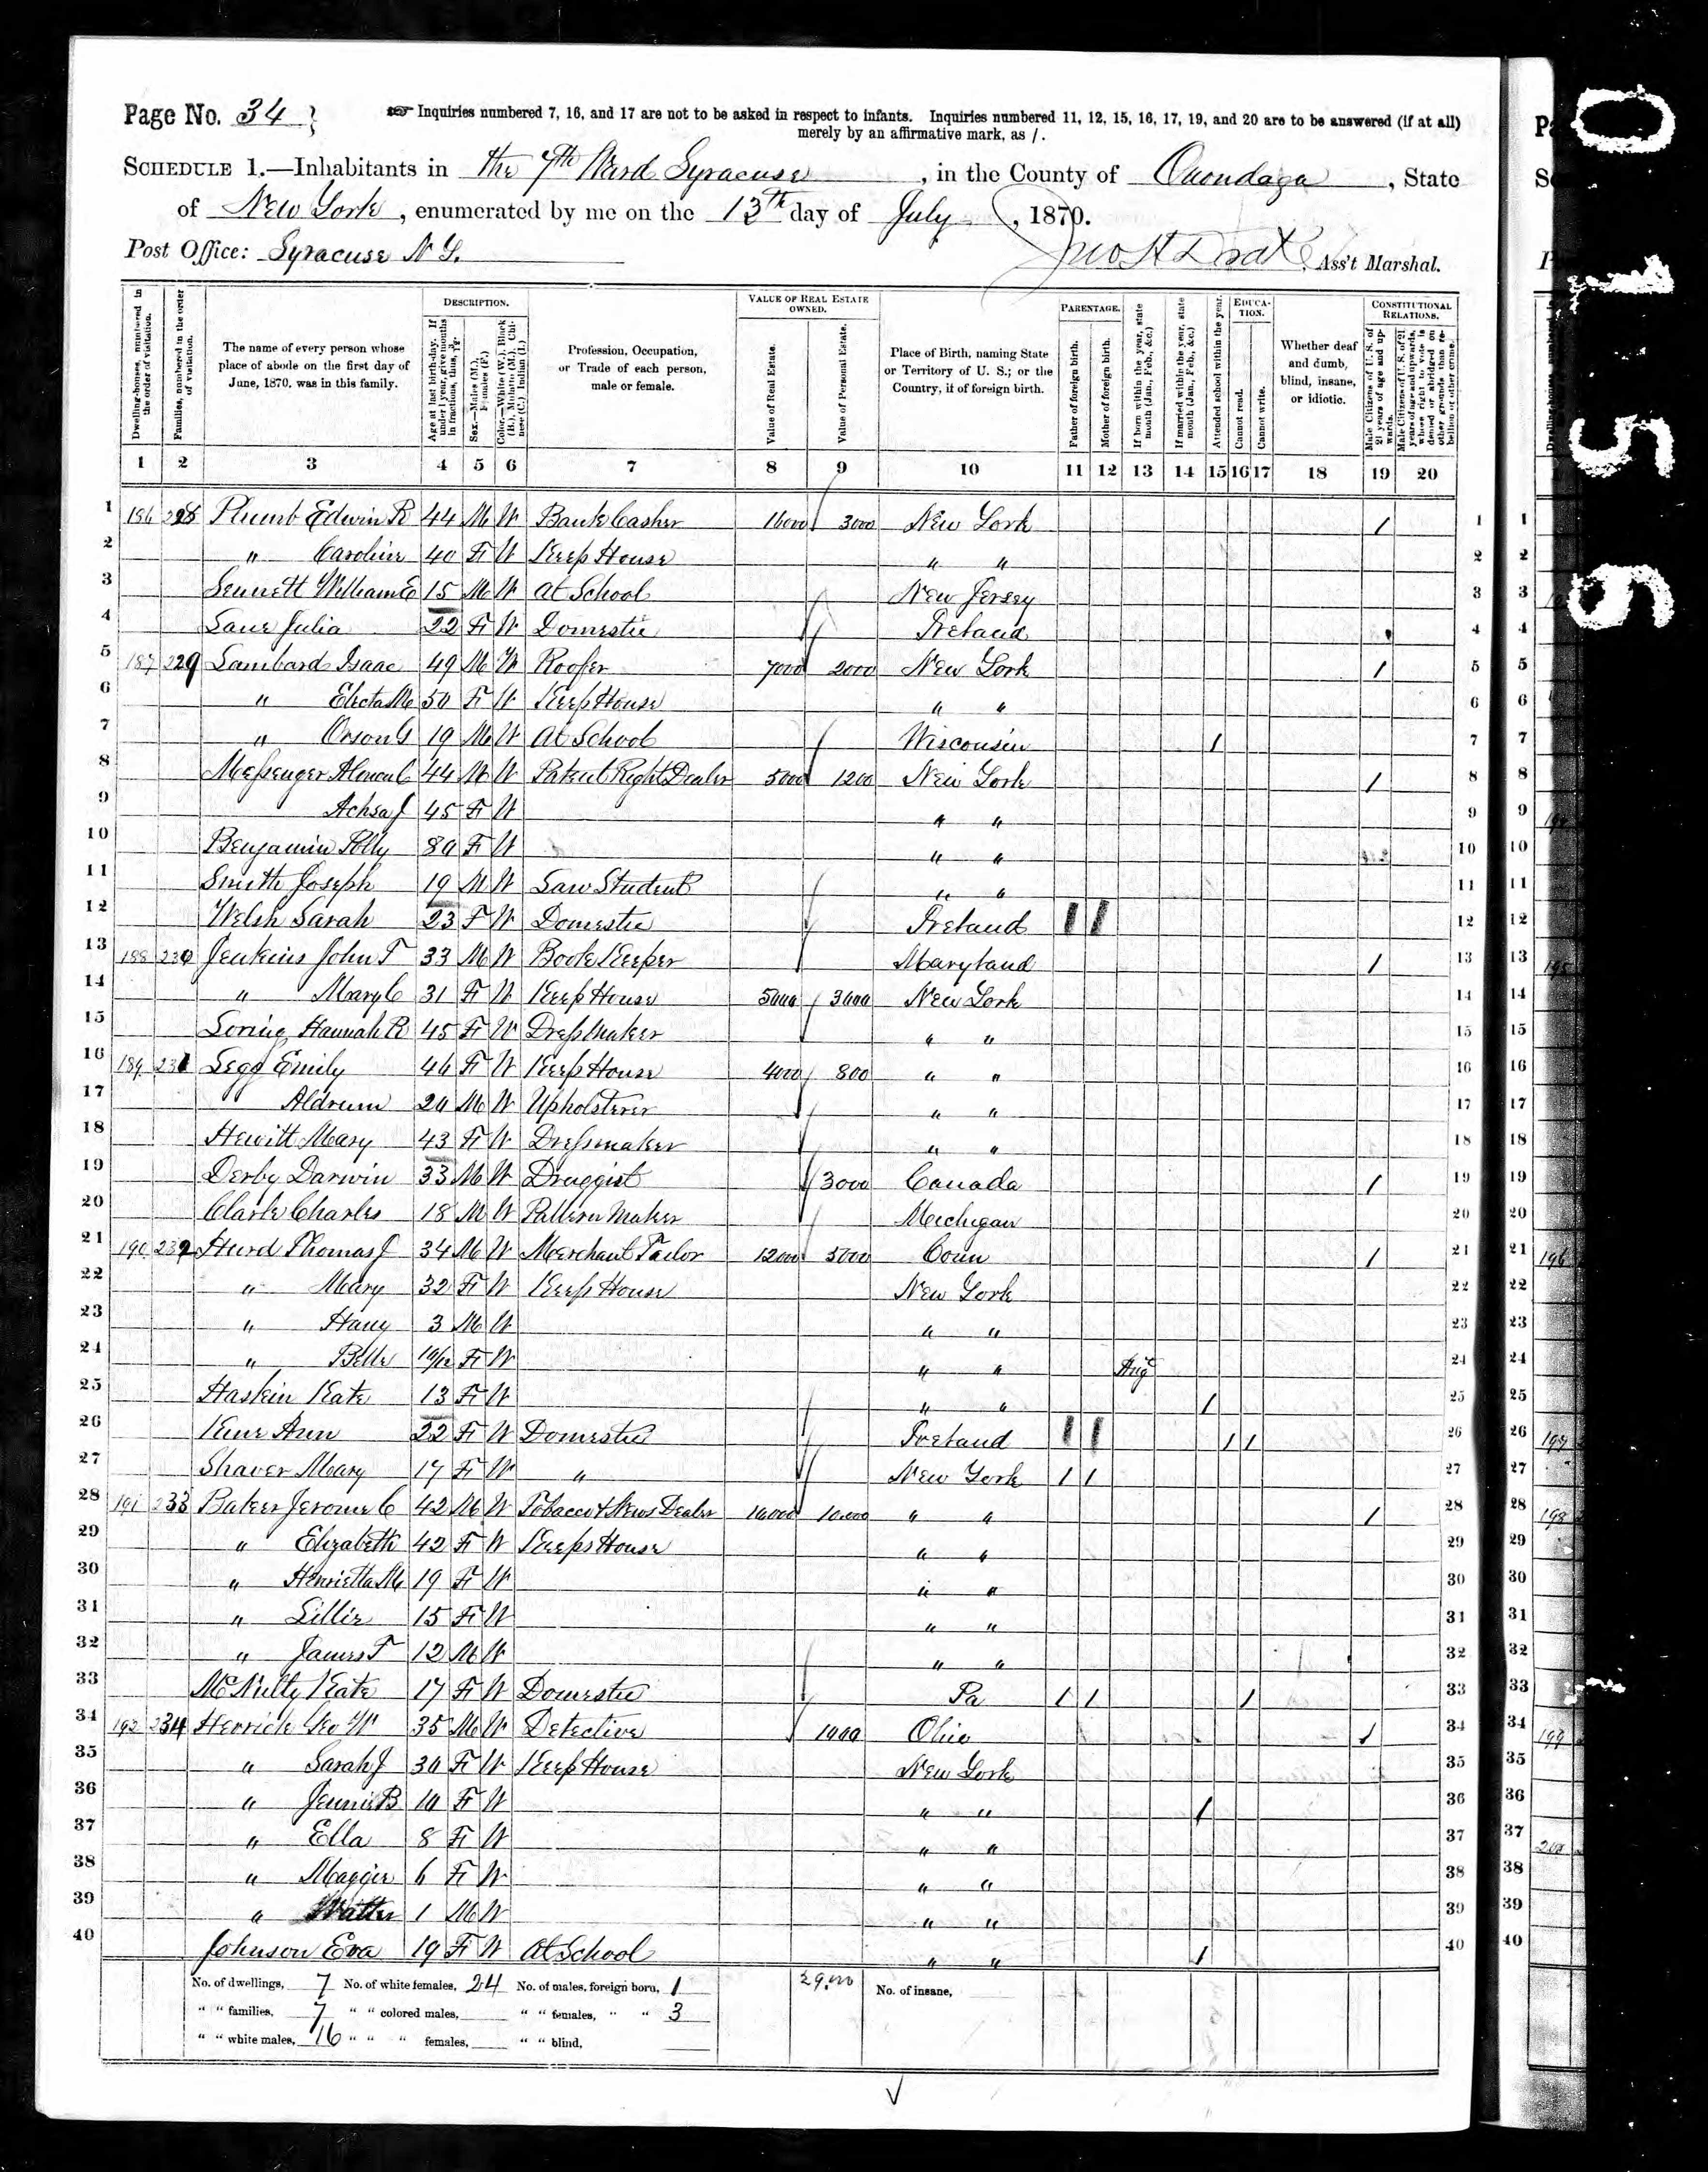 Page No. 34
Inquiries numbered 7, 16, and 17 are not to be asked in respect to infants. Inquiries numbered 11, 12, 15, 16, 17, 19, and 20 are to be answered (if at all)
merely by an affirmative mark, as /.
SCHEDULE 1.—Inhabitants in the 7th Ward Syracuse, in the County of Onondaga, State
of New York, enumerated by me on the 13th day of July, 1870.
Post Office: Syracuse N Y.
Jno H Drake, Ass't Marshal.
Dwelling-houses, numbered in the order of visitation.
Families, numbered in the order of visitation.
The name of every person whose place of abode on the first day of June, 1870, was in this family.
DESCRIPTION.
Age at last birth-day. If under 1 year, give months in fractions, thus, 3/12.
Sex.—Males (M.), Females (F.)
Color.—White (W.), Black (B.), Mulatto (M.), Chinese (C.), Indian (I.)
Profession, Occupation, or Trade of each person, male or female.
VALUE OF REAL ESTATE OWNED.
Value of Real Estate.
Value of Personal Estate.
Place of Birth, naming State or Territory of U. S.; or the Country, if of foreign birth.
PARENTAGE.
Father of foreign birth.
Mother of foreign birth.
If born within the year, state month (Jan., Feb., &c.)
If married within the year, state month (Jan., Feb., &c.)
Attended school within the year.
EDUCATION.
Cannot read.
Cannot write.
Whether deaf and dumb, blind, insane, or idiotic.
CONSTITUTIONAL RELATIONS.
Male Citizens of U. S. of 21 years of age and upwards.
Male Citizens of U. S. of 21 years of age and upwards, whose right to vote is denied or abridged on other grounds than rebellion or other crime.
1 2 3 4 5 6 7 8 9 10 11 12 13 14 15 16 17 18 19 20
1 186 228 Plumb Edwin R 44 M W Bank Casher 16000 3000 New York / 1
2 " Caroline 40 F W Keep House " " 2
3 Sennett William E 15 M W At School New Jersey 3
4 Lane Julia 22 F W Domestic Ireland 4
5 187 229 Lambard Isaac 49 M W Roofer 7000 2000 New York / 5
6 " Electa M 50 F W Keep House " " 6
7 " Orson G 19 M W At School Wisconsin / 7
8 Messenger Alonson C 44 M W Patent Right Dealer 5000 1200 New York / 8
9 Achsa J 45 F W " " 9
10 Benjamin Polly 80 F W " " 10
11 Smith Joseph 19 M W Law Student " " 11
12 Welsh Sarah 23 F W Domestic Ireland / / 12
13 188 230 Jenkins John T 33 M W Book Keeper Maryland / 13
14 " Mary C 31 F W Keep House 5000 3000 New York 14
15 Loring Hannah R 45 F W Dress Maker " " 15
16 189 231 Legg Emily 46 F W Keep House 4000 800 " " 16
17 20 M W Upholsterer " " 17
18 Hewitt Mary 43 F W Dressmaker " " 18
19 Derby Darwin 33 M W Druggist 3000 Canada / 19
20 Clark Charles 18 M W Pattern Maker Michigan 20
21 190 232 Hurd Thomas J 34 M W Merchant Tailor 12000 5000 Conn / 21
22 " Mary 32 F W Keep House New York 22
23 " Harry 3 M W " " 23
24 " Belle 10/12 F W " " Aug 24
25 Haskin Kate 13 F W " " / 25
26 Kane Ann 22 F W Domestic Ireland / / / / 26
27 Shaver Mary 17 F W " New York / / 27
28 191 233 Baker Jerome C 42 M W Tobacco & News Dealer 10000 10.000 " " / 28
29 " Elizabeth 42 F W Keeps House " " 29
30 " Henrietta M 19 F W " " 30
31 " Lillie 15 F W " " 31
32 " James T 12 M W " " 32
33 McNulty Kate 17 F W Domestic Pa / / / 33
34 192 234 Herrick Geo W 35 M W Detective 1000 Ohio / 34
35 " Sarah J 30 F W Keep House New York 35
36 " Jennie B 10 F W " " / 36
37 " Ella 8 F W " " 37
38 " Maggie 6 F W " " 38
39 " Walter 1 M W " " 39
40 Johnson Eva 19 F W At School " " / 40
No. of dwellings, 7 No. of white females, 24 No. of males, foreign born, 1 29,000 No. of insane,
" " families, 7 " " colored males, " " females, " " 3
" " white males, 16 " " " females, " " blind,